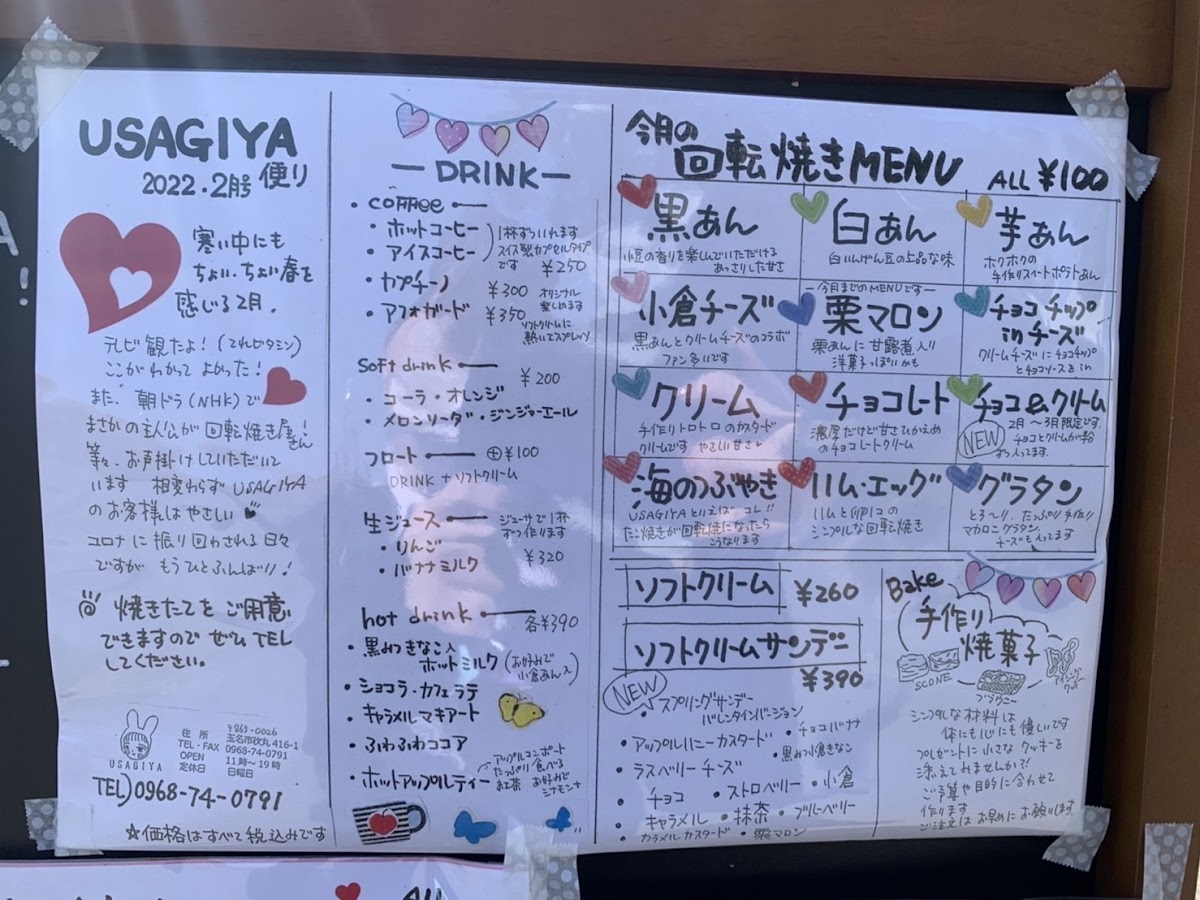 USAGIYA
2022.2月号 便り
寒い中にも
ちょい・ちょい春を
感じる2月。
テレビ観たよ!(てれビタミン)
ここがわかってよかった!
また、朝ドラ(NHK)で
まさかの主人公が回転焼き屋さん!
等々、お声掛けしていただいて
います 相変わらずUSAGIYA
のお客様はやさしい
コロナに振り回される日々
ですが もうひとふんばり!
焼きたてをご用意
できますので ぜひTEL
してください。
USAGIYA
〒865-0026
住所 玉名市秋丸416-1
TEL・FAX 0968-74-0791
OPEN 11時〜19時
定休日 日曜日
TEL)0968-74-0791
☆価格はすべて税込みです
DRINK
・coffee
・ホットコーヒー
・アイスコーヒー
1杯ずついれます
スイス製カプセルタイプ
です ¥250
・カプチーノ ¥300
・アフォガード ¥350
オリジナル
楽しめます
ソフトクリームに
熱いエスプレッソ
soft drink ¥200
・コーラ・オレンジ
・メロンソーダ・ジンジャーエール
フロート ⊕¥100
DRINK+ソフトクリーム
生ジュース
ジューサで1杯
ずつ作ります
・りんご
・バナナミルク ¥320
hot drink 各¥390
・黒みつきなこ入
ホットミルク(お好みで
小倉あん入)
・ショコラ・カフェラテ
・キャラメルマキアート
・ふわふわココア
・ホットアップルティー
アップルコンポート
たっぷり食べる
紅茶 お好みで
シナモンを
今月の
回転焼きMENU ALL ¥100
黒あん
小豆の香りを楽しんでいただける
あっさりした甘さ
白あん
白いんげん豆の上品な味
芋あん
ホクホクの
手作りスイートポテトあん
小倉チーズ
黒あんとクリームチーズのコラボ
ファン多いです
今月までのMENUです
栗マロン
栗あんに甘露煮入り
洋菓子っぽいかも
チョコチップ
inチーズ
クリームチーズにチョコチップ
とチョコソースをin
クリーム
手作りトロトロのカスタード
クリームです やさしい甘さ
チョコレート
濃厚だけど甘さひかえめ
のチョコレートクリーム
チョコ&クリーム
2月〜3月限定です。
NEW
チョコとクリームが約
ずつ入ってます。
海のつぶやき
USAGIYAといえば コレ!!
たこ焼きが回転焼になったら
こうなります
ハム・エッグ
ハムと卵1コの
シンプルな回転焼き
グラタン
とろ〜り、たっぷり手作り
マカロニグラタン。
チーズも入ってます
ソフトクリーム ¥260
ソフトクリームサンデー
¥390
NEW
・スプリングサンデー
バレンタインバージョン
・アップルハニーカスタード
・チョコバナナ
・ラズベリーチーズ
・黒みつ小倉きなこ
・チョコ ・ストロベリー ・小倉
・キャラメル ・抹茶 ・ブルーベリー
・カラメルカスタード ・栗マロン
Bake
手作り
焼菓子
SCONE
ブラウニー
アイシング
クッキー
シンプルな材料は
体にも心にも優しいです
プレゼントに小さなクッキーを
添えてみませんか?!
ご予算や目的に合わせて
作ります
ご注文はお早めにお願いします。